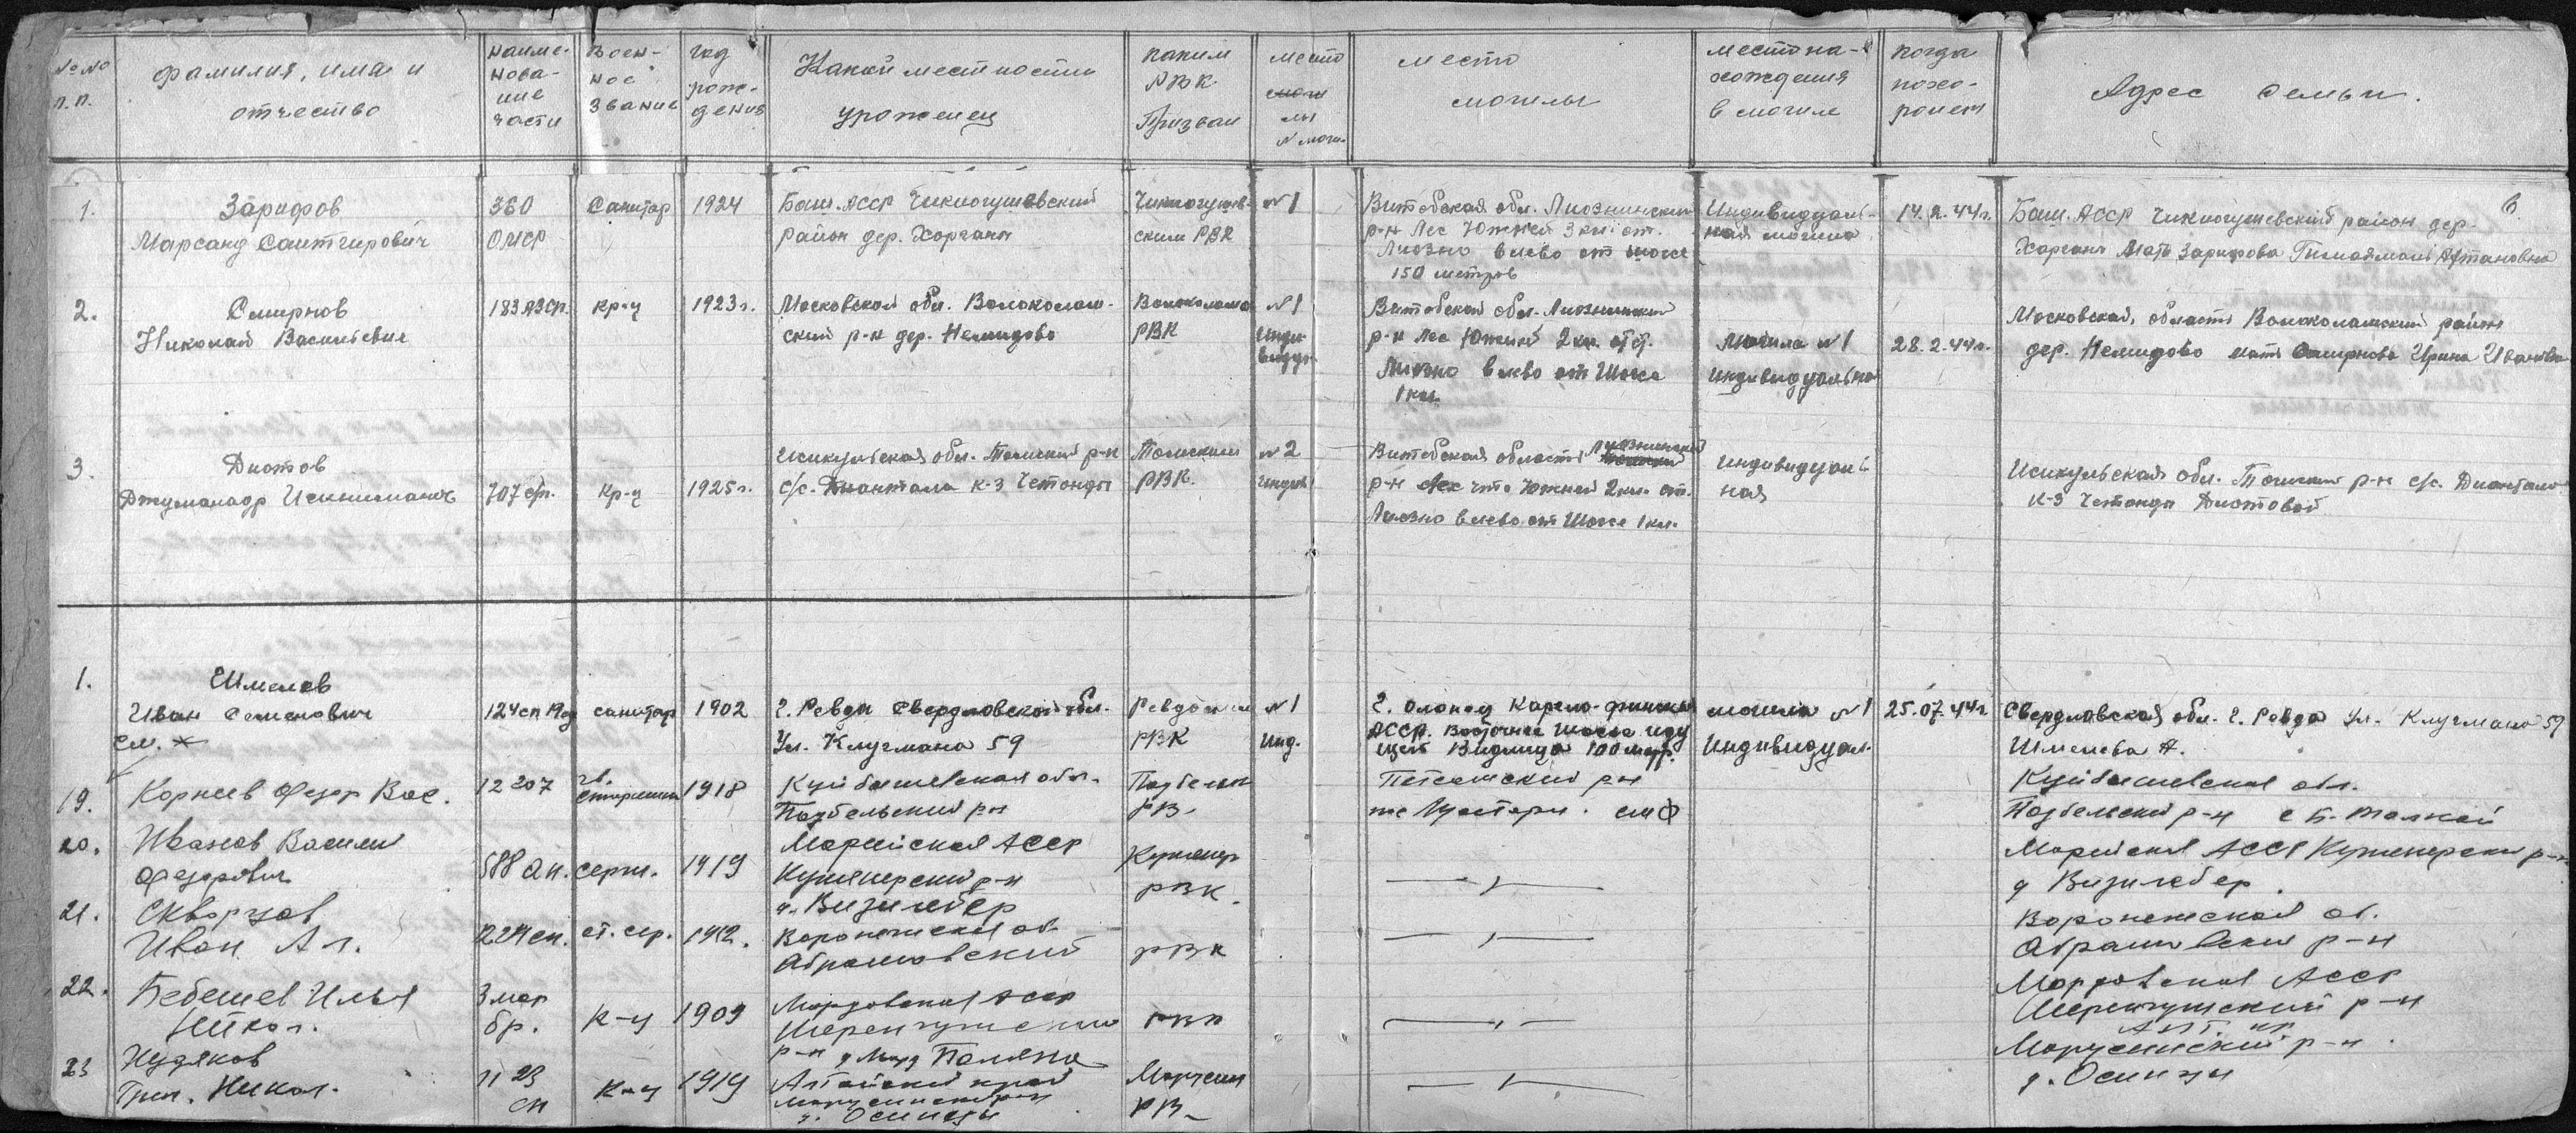 №№ п.п.
фамилия, имя и отчество
наиме-
нова-
ние
части
Воен-
ное
звание
год
рож-
дения
Какой местности
урожениц
каким
РВК
Призван
место
мы
N моги.
место
могилы
местона-
хождения
в могиле
когда
похо-
ронен
Адрес семьи.
6
1.
Зарифов
Марсанд Саитгирович
360
ОМСР
Санитар
1924
Баш. АССР Чикмогушевский
район дер.
Чикмогушев-
ским РВК
N1
Витебская обл. Лиознинский
р-н Лес Южней 3 км ст.
Лиозно влево от шоссе
150 метров
Индивидуаль-
ная могила
14.2.44г.
Баш. АССР Чикмогушевский район дер.
Мать Зарифова
2.
Смирнов
Николай Васильевич
183 АЗСП.
кр-ц
1923г.
Московской обл. Волоколам-
ский р-н дер. Немидово
Волоколамс
РВК
N1
Инди-
видуа
Витебской обл. Лиознинский
р-н Лес Южней 2 км. от ст.
Лиозно влево от Шоссе
1 км.
Могила N1
индивидуально
28.2.44г.
Московской, область Волоколамский район
дер. Немидово мать Смирнова Ирина Ивановна
3.
Диотов
Джуманадр
707 сп.
Кр-ц
1925г.
обл. р-н
с/с. к-з
РВК.
N2
индив
Витебская область Лиознинский
р-н Лес что Южней 2 км. от.
Лиозно влево от Шоссе 1 км.
индивидуаль
ная
обл. р-н с/с.
к-з Диотовой
1.
Шмелев
Иван Семенович
см. *
124 сп
санитар
1902
г. Ревда Свердловской обл.
Ул. Клугмана 59
Ревдинск
РВК
N1
Инд.
г. Олонец Карело-финской
АССР. Восточнее шоссе иду
щей Видлица 100 метр.
могила N1
Индивидуал.
25.07.44г
Свердловская обл. г. Ревда Ул. Клугмана 59
Шмелева А.
19.
Корнеев Федор Вас.
12 207
гв.
старшина
1918
Куйбышевская обл.
Подбельский р-н
Подбельск
РВ-
р-н
Куйбышевская обл.
Подбельский р-н с Б. Толкай
20.
Иванов Васили
Федорович
588 ап.
серж.
1919
Марийская АССР
Куженерский р-н
д. Визимбер
Куженер
РВК.
— " —
Марийская АССР Куженерски р-н
д Визимбер.
21.
Скворцов
Иван Ал.
224 сп.
ст. сер.
1912.
Воронежская об
Абрамовский
РВК
— " —
Воронежская об.
Абрамовский р-н
22.
Бебешев Илья
Никол.
3 мор
бр.
К-ц
1909
Мордовская АССР
р-н д Морд Поляна
РВК
— " —
Мордовская АССР
р-н
23
Худяков
Григ. Никол.
1123
сп
К-ц
1919
Алтайский край
д. Осинцы
РВ-
— " —
Алт. кр.
р-н.
д. Осинцы